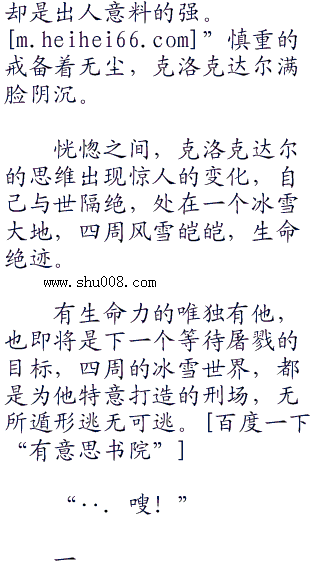 却是出人意料的强。
[m.heihei66.com]”慎重的
戒备着无尘，克洛克达尔满
脸阴沉。
恍惚之间，克洛克达尔
的思维出现惊人的变化，自
己与世隔绝，处在一个冰雪
大地，四周风雪皑皑，生命
绝迹。
www.shu008.com
有生命力的唯独有他，
也即将是下一个等待屠戮的
目标，四周的冰雪世界，都
是为他特意打造的刑场，无
所遁形逃无可逃。[百度一下
“有意思书院”]
“··．嗖！”
一